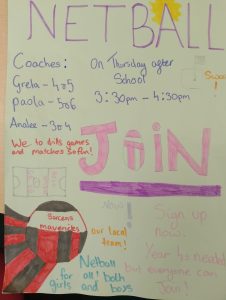 NETBALL
Coaches:
Greta - 4σ5
Paola - 5σ6
Analee - 3σ4
On Thursday after
School
3:30pm - 4:30pm
We to drills games
and matches so fun!
JOIN
now!
Sorcens
mavericks
our local
team!
Sign up
now.
Netball
for all! both
girls and boys
Year 4 is needed
but everyone can
Join!